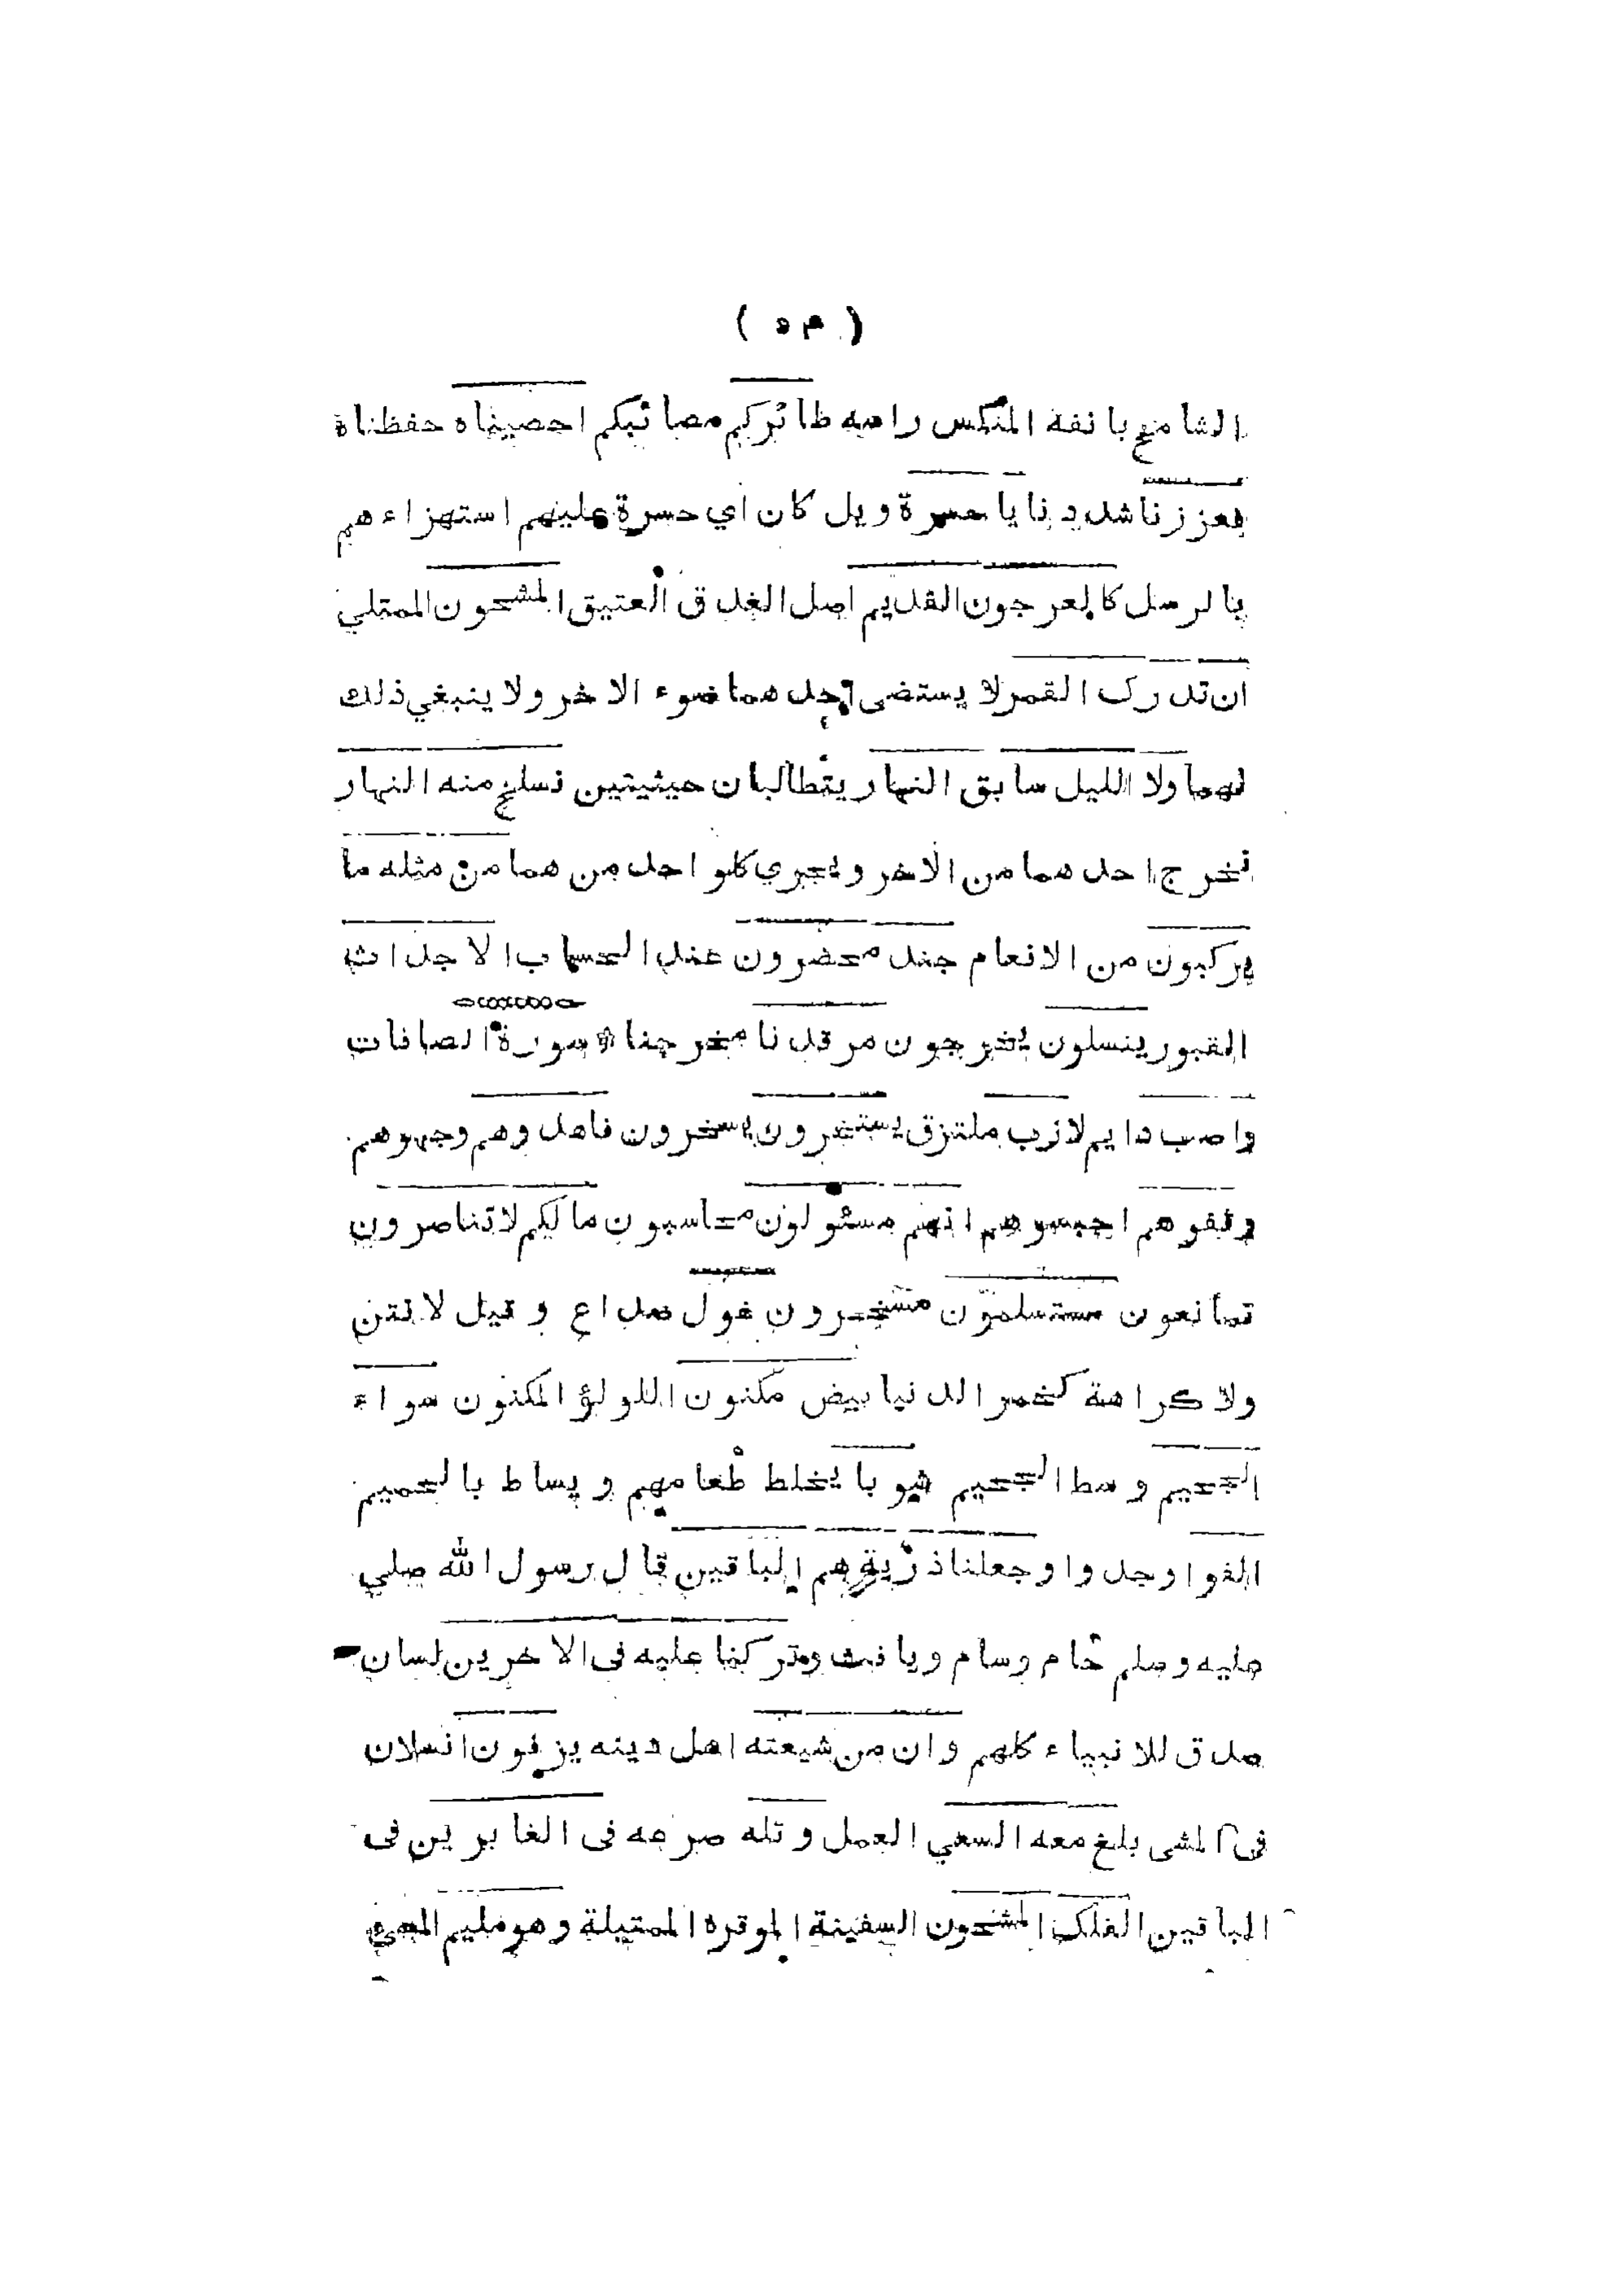 الشامخ بانفه المنكس راسه طائركم مصائبكم احصيناه حفظناه
فعززنا شددنا يا حسرة ويل كان اي حسرة عليهم استهزاءهم
بالرسل كالعرجون القديم اصل الغدق العتيق المشحون الممتلي
ان تدرك القمر لا يستضى احدهما ضوء الاخر ولا ينبغي ذلك
لهما ولا الليل سابق النهار يتطالبان حيثيتين نسلخ منه النهار
نخرج احدهما من الاخر و يجري كلواحد من هما من مثله ما
يركبون من الانعام جند محضرون عند الحساب الاجداث
القبور ينسلون يخرجون مرقدنا مخرجنا * سورة الصافات
واصب دايم لازب ملتزق يستخرون يسخرون فاهدوهم وجهوهم
وقفوهم احبسوهم انهم مسئولون محاسبون مالكم لاتناصرون
تمانعون مستسلمون مستخرون غول صداع وقيل لا نتن
ولا كراهة كخمر الدنيا بيض مكنون اللولؤ المكنون سواء
الجحيم وسط الجحيم شوبا يخلط طعامهم ويساط بالحميم
الفوا وجدوا وجعلنا ذريته هم الباقين قال رسول الله صلي
عليه وسلم حام وسام ويافث وتركنا عليه فى الاخرين لسان
صدق للانبياء كلهم وان من شيعته اهل دينه يزفون انسلان
فى المشى بلغ معه السعي العمل وتله صرعه فى الغابرين فى
الباقين الفلك المشحون السفينة الموقره الممتيلة وهو مليم المسي